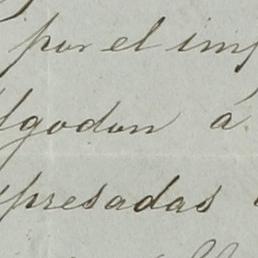 por el imp
lgodon á
presadas